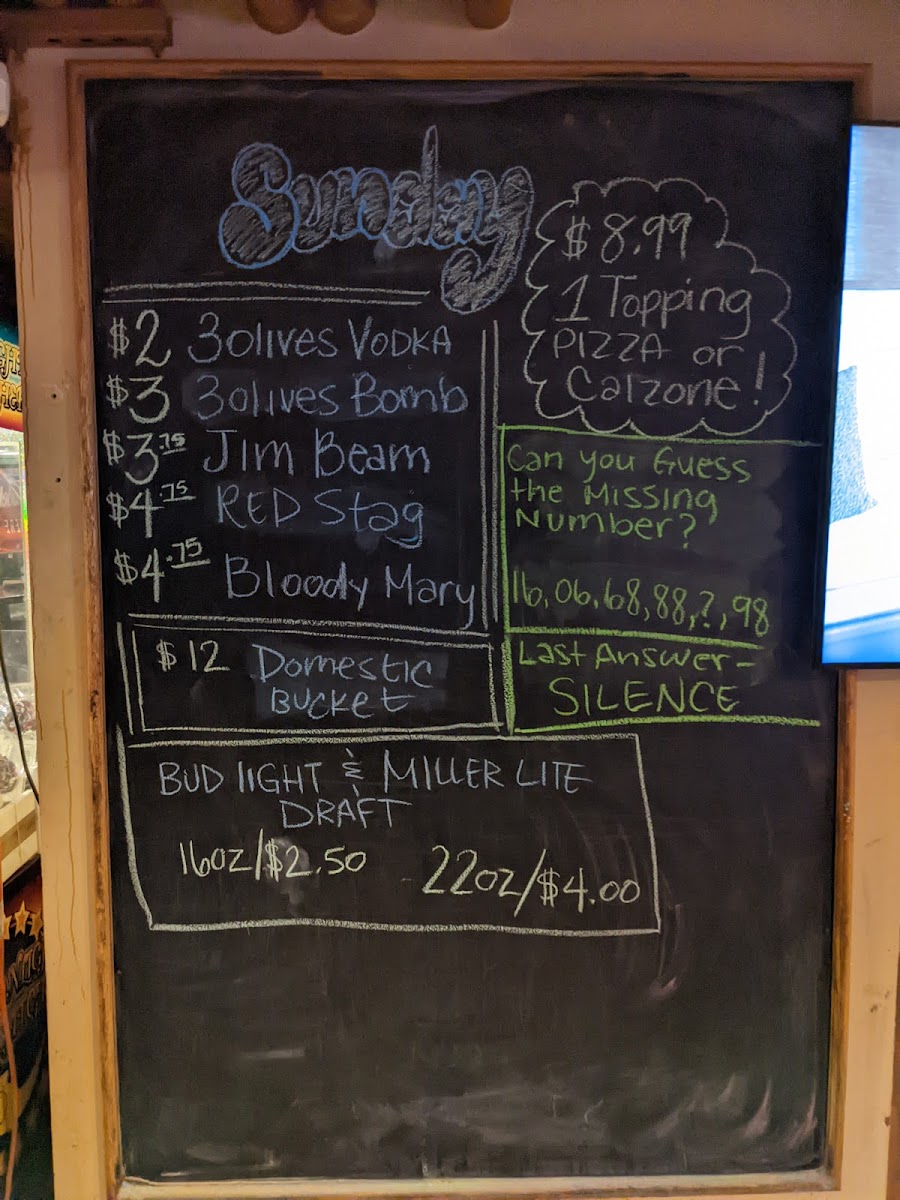 Sunday
$2 3olives VODKA
$3 3olives Bomb
$3.75 Jim Beam
$4.75 RED Stag
$4.75 Bloody Mary
$12 Domestic
Bucket
BUD lIGHT & MILLER LITE
DRAFT
16oz/$2.50 22oz/$4.00
$8.99
1 Topping
PIZZA or
Calzone!
Can you Guess
the Missing
Number?
16,06,68,88,?,98
Last Answer-
SILENCE